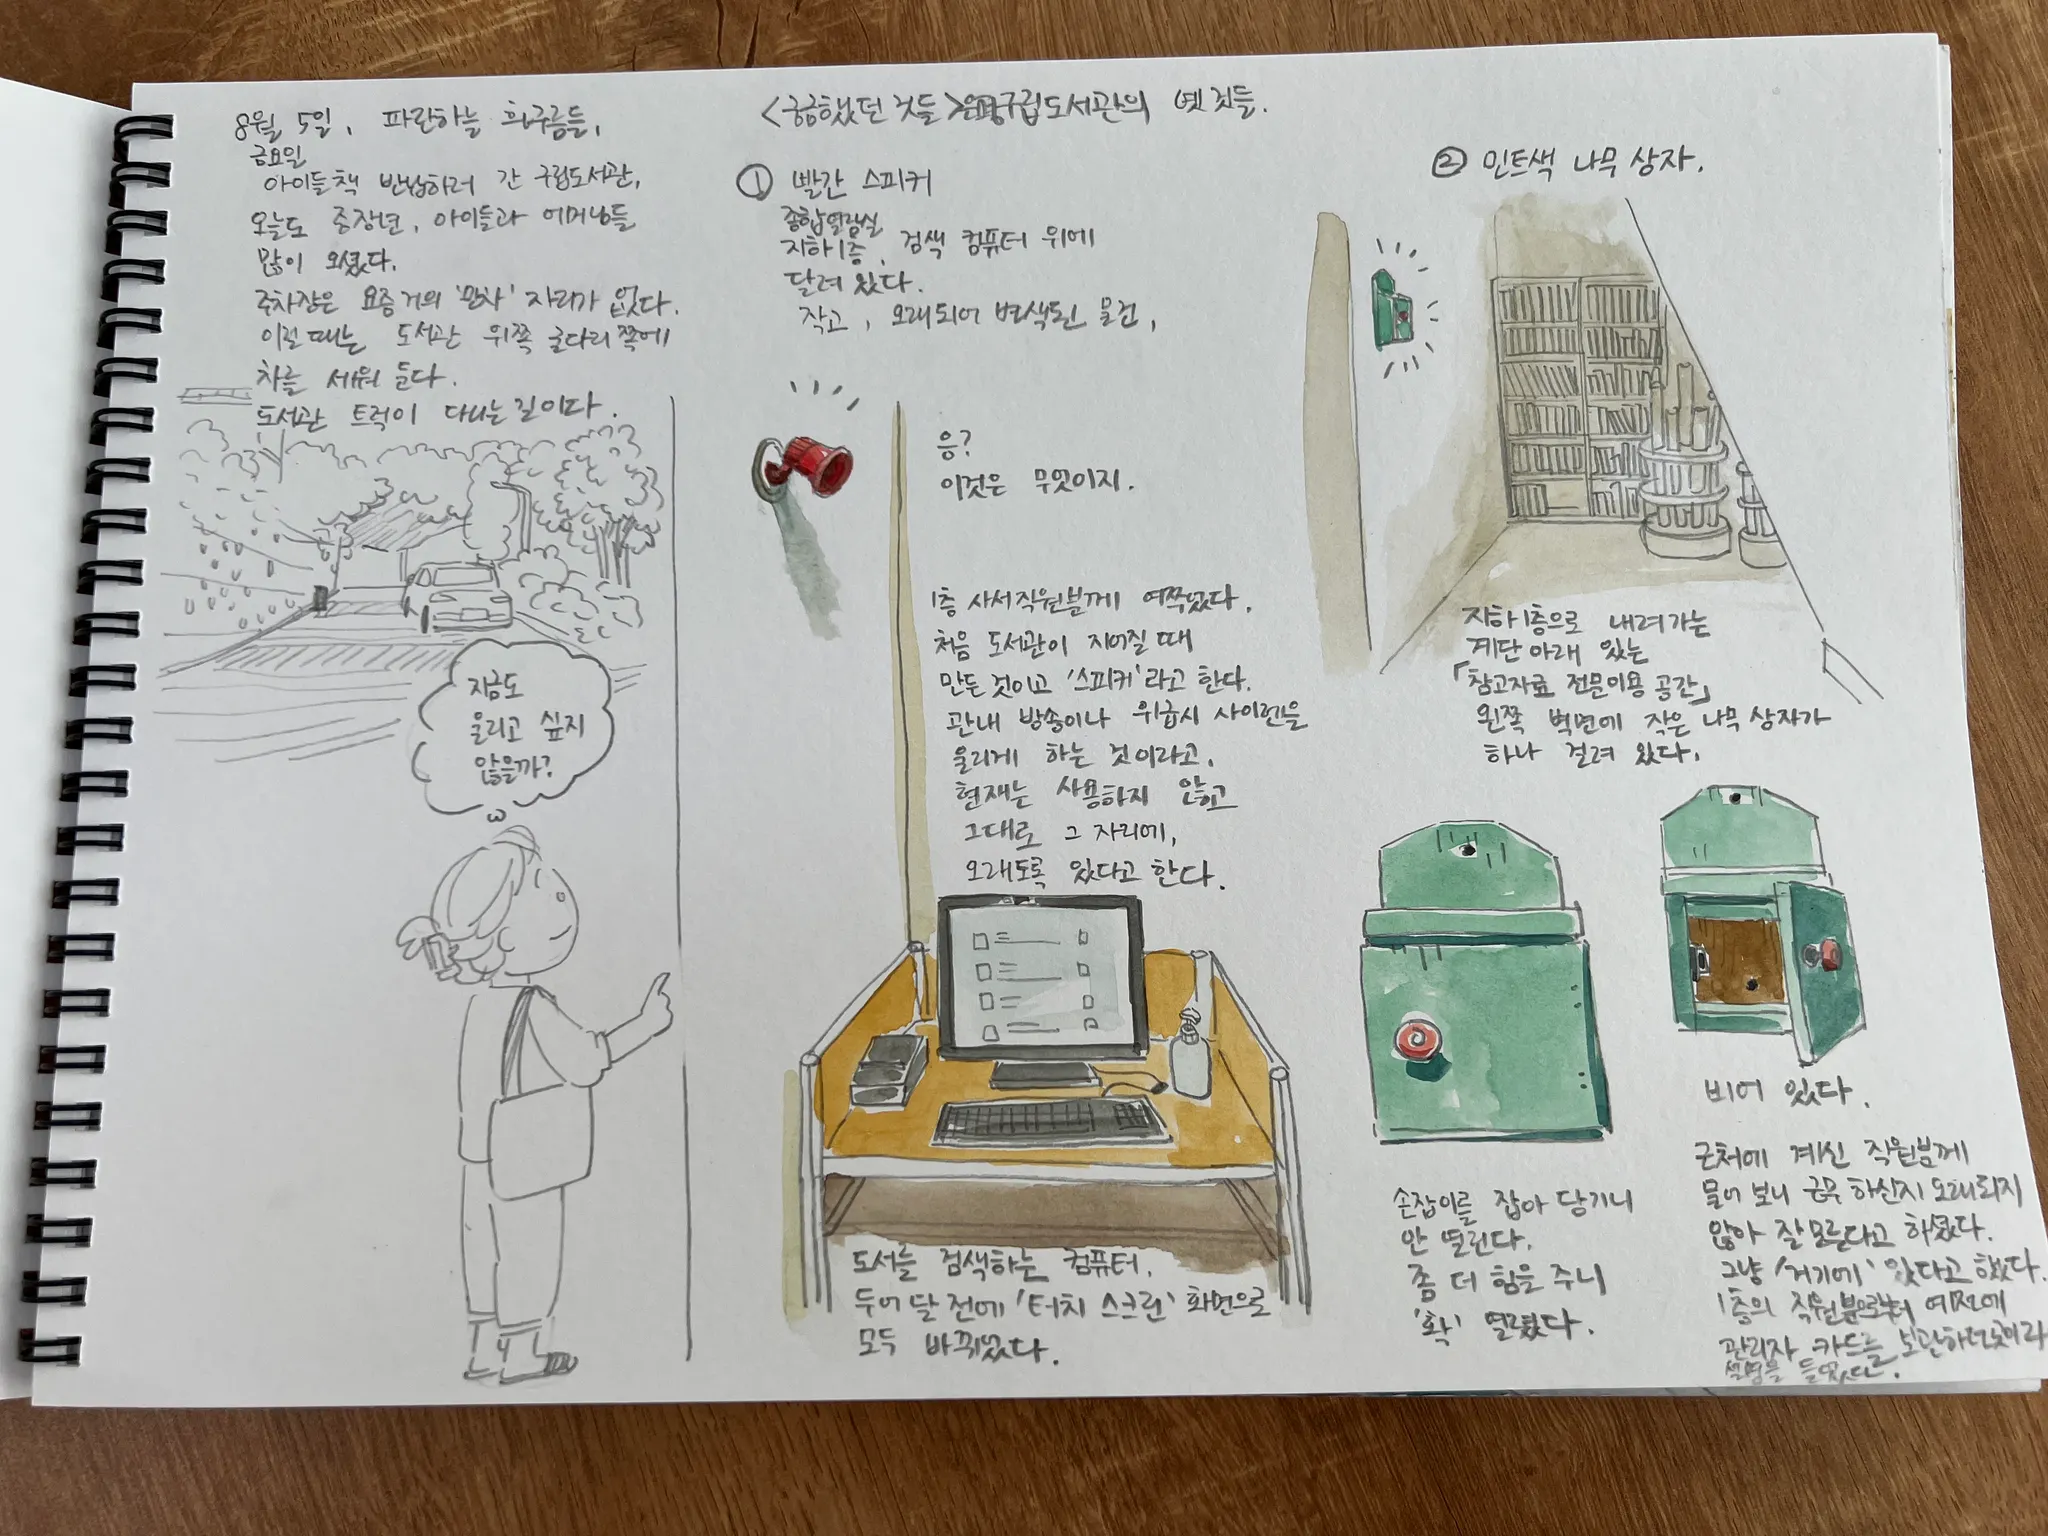 8월 5일, 파란하늘 흰구름들,
금요일
아이들책 반납하러 간 구립도서관,
오늘도 중장년, 아이들과 어머님들
많이 오셨다.
주차장은 요즘 거의 '만차' 자리가 없다.
이럴 때는 도서관 위쪽 굴다리 쪽에
차를 세워 둔다.
도서관 트럭이 다니는 길이다.
지금도
울리고 싶지
않을까?
<궁금했던 것들> 구립도서관의 옛 것들.
① 빨간 스피커
종합열람실
지하1층, 검색 컴퓨터 위에
달려 있다.
작고, 오래되어 변색된 물건,
응?
이것은 무엇이지.
1층 사서직원분께 여쭤봤다.
처음 도서관이 지어질 때
만든 것이고 '스피커'라고 한다.
관내 방송이나 위급시 사이렌을
울리게 하는 것이라고.
현재는 사용하지 않고
그대로 그 자리에,
오래도록 있다고 한다.
도서를 검색하는 컴퓨터.
두어 달 전에 '터치 스크린' 화면으로
모두 바뀌었다.
② 민트색 나무 상자.
지하1층으로 내려가는
계단 아래 있는
「참고자료 전문이용 공간」
왼쪽 벽면에 작은 나무 상자가
하나 걸려 있다.
손잡이를 잡아 당기니
안 열린다.
좀 더 힘을 주니
'확' 열렸다.
비어 있다.
근처에 계신 직원분께
물어 보니 근무 하신지 오래되지
않아 잘 모른다고 하셨다.
그냥 '거기에' 있다고 했다.
1층의 직원분으로부터 예전에
관리자 카드를 보관하던 곳이라
설명을 들었다.